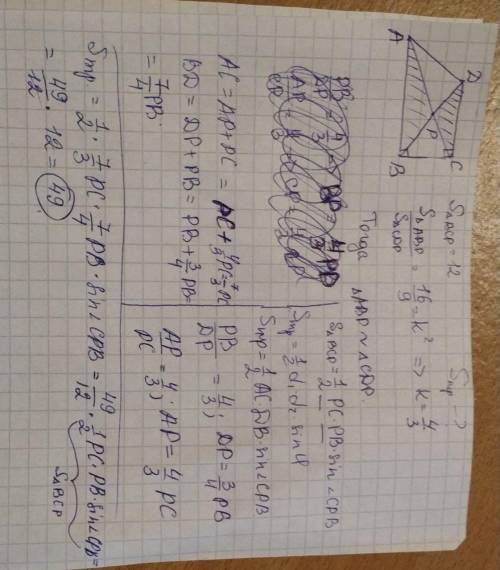 D
A
P
C
B
S△BCP = 12
Sтр - ?
S△ABP / S△CDP = 16/9 = k² => k = 4/3
Тогда △ABP ~ △CDP.
S△BCP = 1/2 PC·PB·sin∠CPB
Sтр = 1/2 d₁·d₂·sin φ
Sтр = 1/2 AC·DB·sin∠CPB
PB/DP = 4/3; DP = 3/4 PB
AP/PC = 4/3; AP = 4/3 PC
AC = AP + PC = PC + 4/3 PC = 7/3 PC
BD = DP + PB = PB + 3/4 PB =
= 7/4 PB.
Sтр = 1/2 · 7/3 PC · 7/4 PB · sin∠CPB = 49/12 · 1/2 PC·PB·sin∠CPB =
S△BCP
= 49/12 · 12 = 49